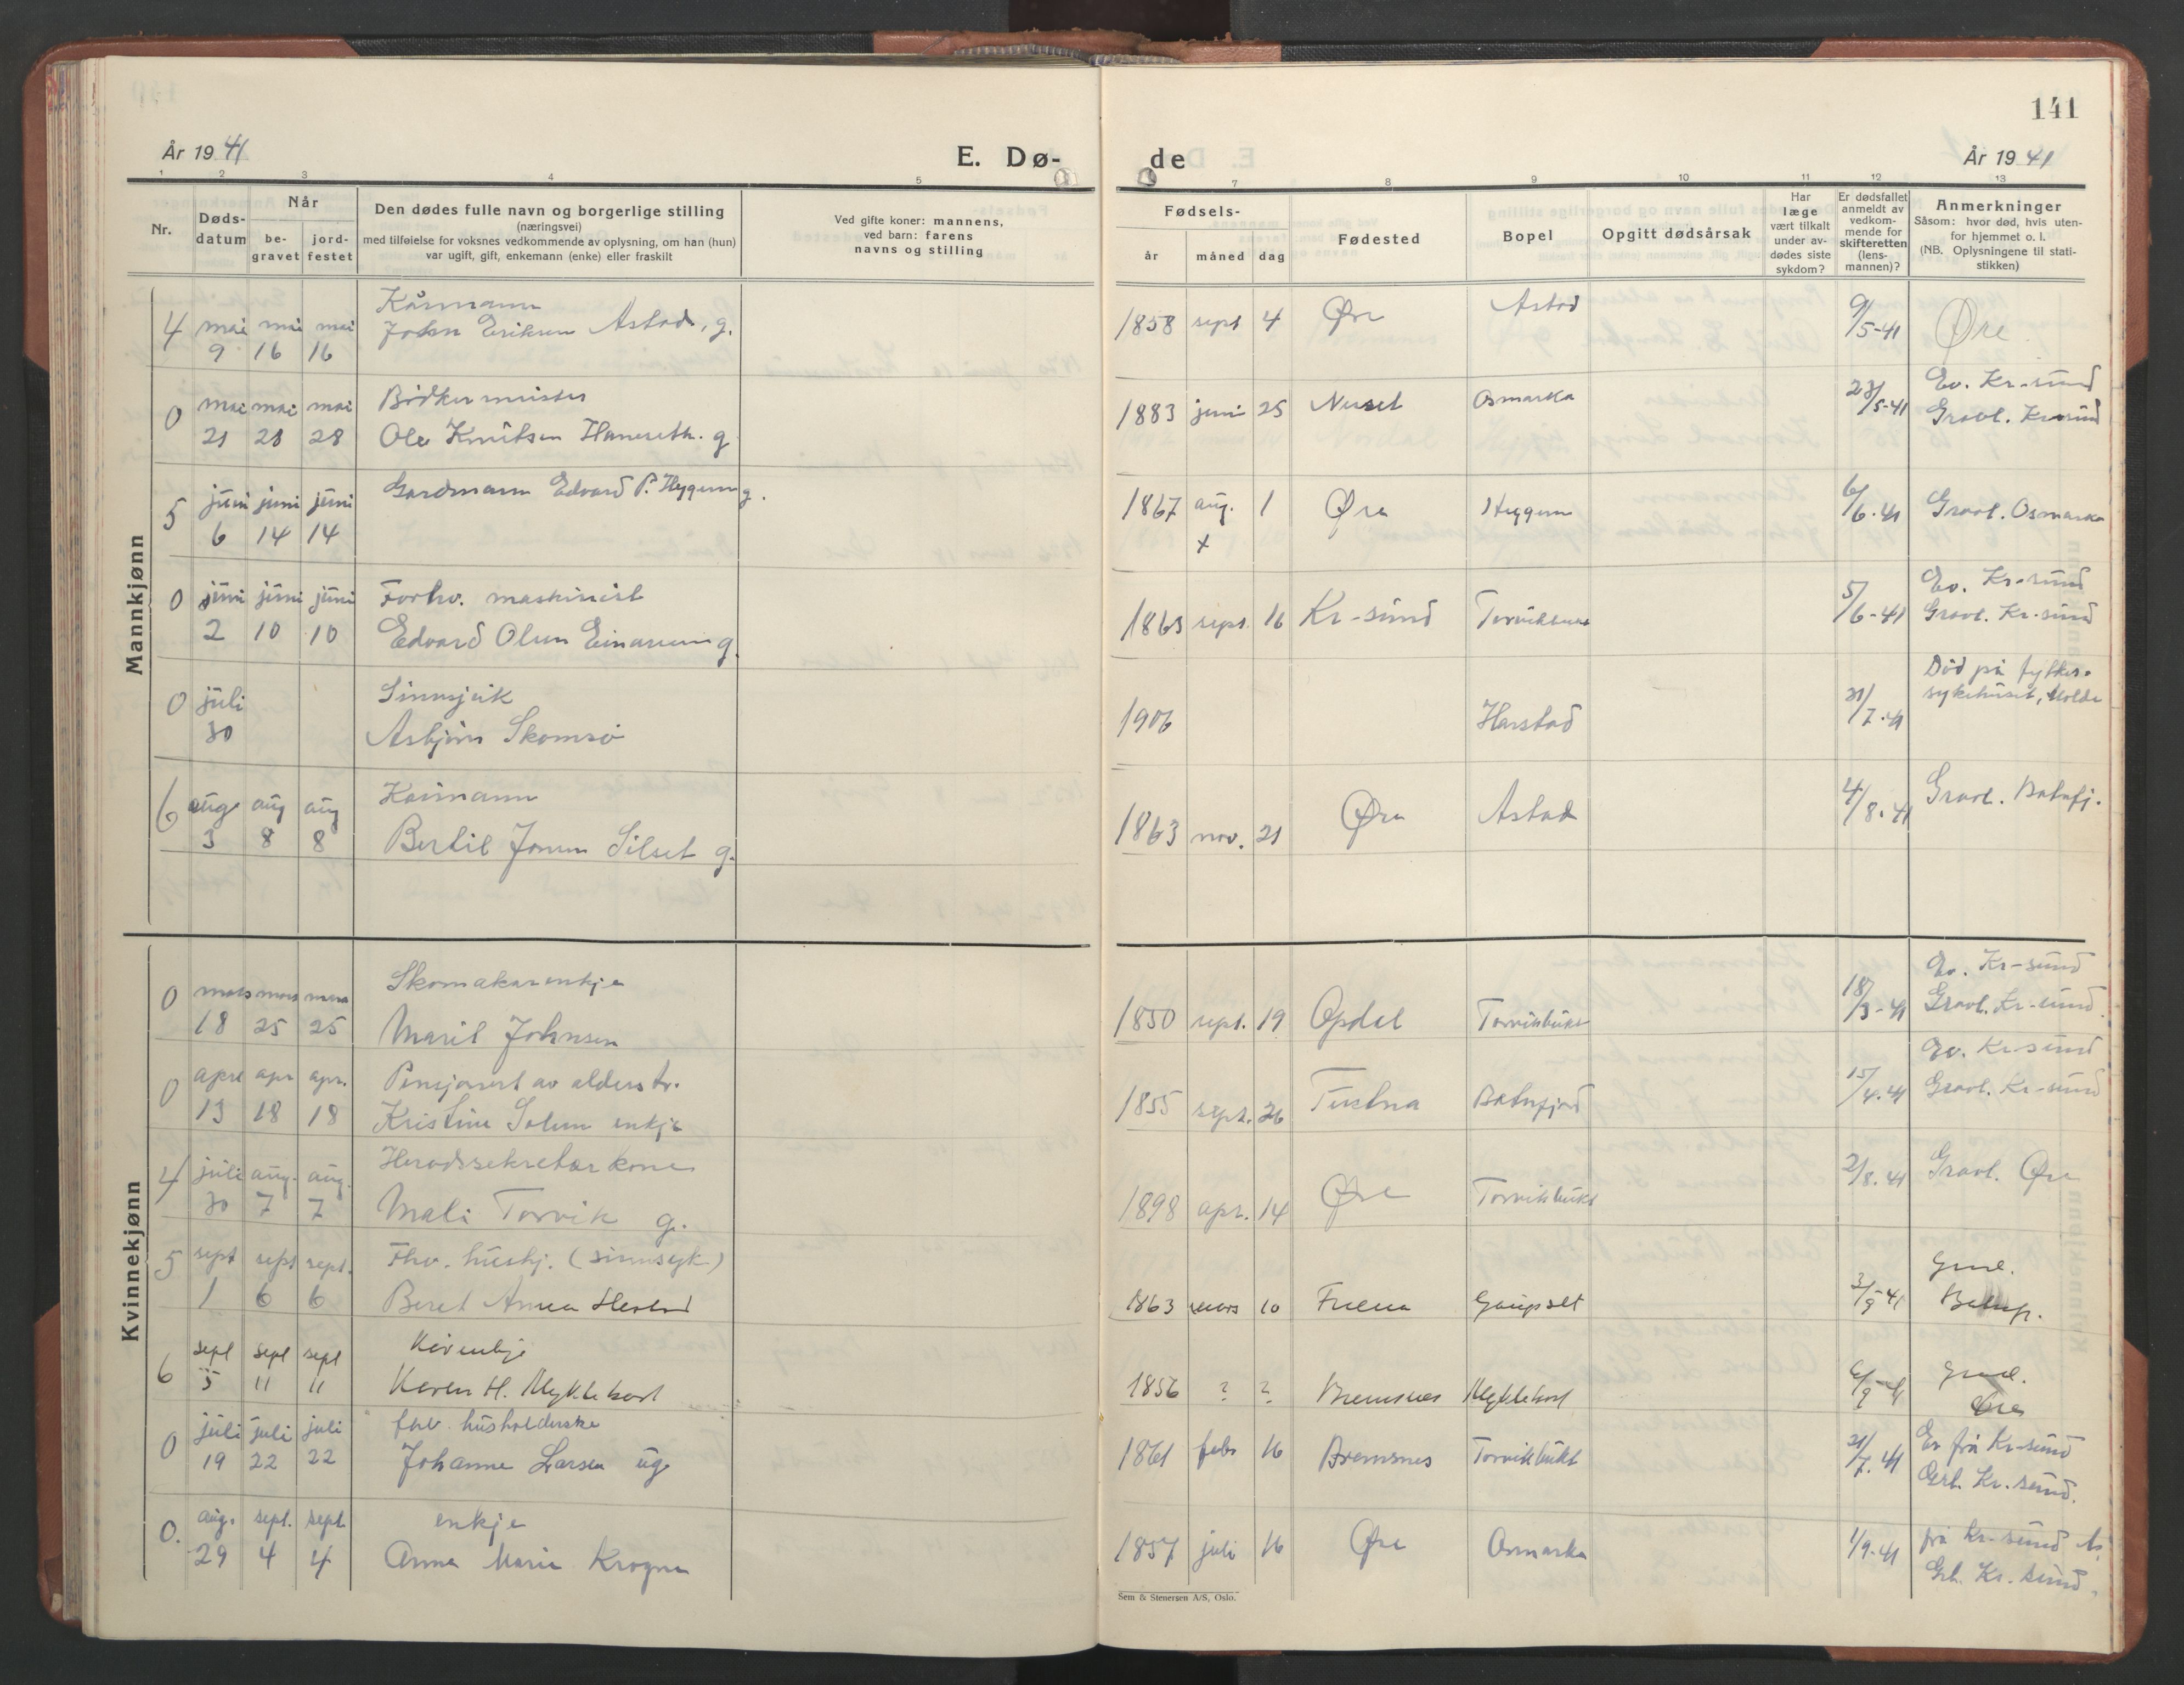 141
År 19 41
E. Dø-
de
År 19 41
1 2 3 4 5
7 8 9 10 11 12 13
Nr.
Døds-
datum
Når
be-
gravet
jord-
festet
Den dødes fulle navn og borgerlige stilling
(næringsvei)
med tilføielse for voksnes vedkommende av oplysning, om han (hun)
var ugift, gift, enkemann (enke) eller fraskilt
Ved gifte koner: mannens,
ved barn: farens
navns og stilling
Fødsels-
år måned dag
Fødested
Bopel
Opgitt dødsårsak
Har
læge
vært tilkalt
under av-
dødes siste
sykdom?
Er dødsfallet
anmeldt av
vedkom-
mende for
skifteretten
(lens-
mannen)?
Anmerkninger
Såsom: hvor død, hvis uten-
for hjemmet o. l.
(NB. Oplysningene til stati-
stikken)
Mannkjønn
Kårmann
4 mai mai mai John Eriksen Astad, g. 1858 sept 4 Øre Astad 9/5-41 Øre
9 16 16
0 mai mai mai Bødkermeister 1883 juni 25 Neset Osmarka 23/5-41 Ev. Kr-sund
21 28 28 Ole Knutsen Hanseth. g Gravl. Kr-sund
5 juni juni juni Gardmann Edvard P. Heggem g. 1867 aug. 1 Øre Heggem 6/6-41 Gravl. Osmarka
6 14 14 x
0 juni juni juni Forhv. maskinist 1863 sept. 16 Kr-sund 5/6-41 Ev. Kr-sund
2 10 10 Edvard Olsen Einarsen g. Gravl. Kr-sund
0 juli Sinnsjuk 1906 Harstad 31/7-41 Død på fylkes-
30 Asbjørn Skomsø sykehuset, Molde
6 aug aug aug Kårmann 1863 nov. 21 Øre Astad 4/8-41 Gravl. Batnfj.
3 8 8 Bertil Jonsen Silset g.
Kvinnekjønn
0 mars mars mars Skomakarenkje 1850 sept. 19 Opdal Torvikbukt 18/3-41 Ev. Kr-sund
18 25 25 Marit Johnsen Gravl. Kr-sund.
0 apr apr apr. Pensjonert av alderstr. 1855 sept. 26 Tustna Batnfjord 15/4-41 Ev. Kr-sund
13 18 18 Kristine Solem enkje Gravl. Kr-sund
4 juli aug. aug. Heradssekretær kone 1898 apr. 14 Øre Torvikbukt 2/8-41 Gravl. Øre
30 7 7 Mali Torvik g.
5 sept sept sept. Fhv. hushj. (sinnsyk) 1863 mars 10 Fræna Gaupset 3/9-41 Gravl.
1 6 6 Beret Anna Batnfj.
6 sept sept sept 1856 ? ? Bremsnes Myklebost Gravl.
5 11 11 Karen H. Myklebost Øre
0 juli juli juli fhv. husholderske 1861 febr 16 Bremsnes Torvikbukt 21/7-41 Ev frå Kr-sund
19 22 22 Johanne Larsen ug. Grl. Kr. sund.
0. aug. sept. sept enkje 1857 juli 16 Øre Osmarka 1/9-41 frå Kr-sund
29 4 4 Anna Marie Krogne Grl. Kr. sund.
Sem & Stenersen A/S, Oslo.